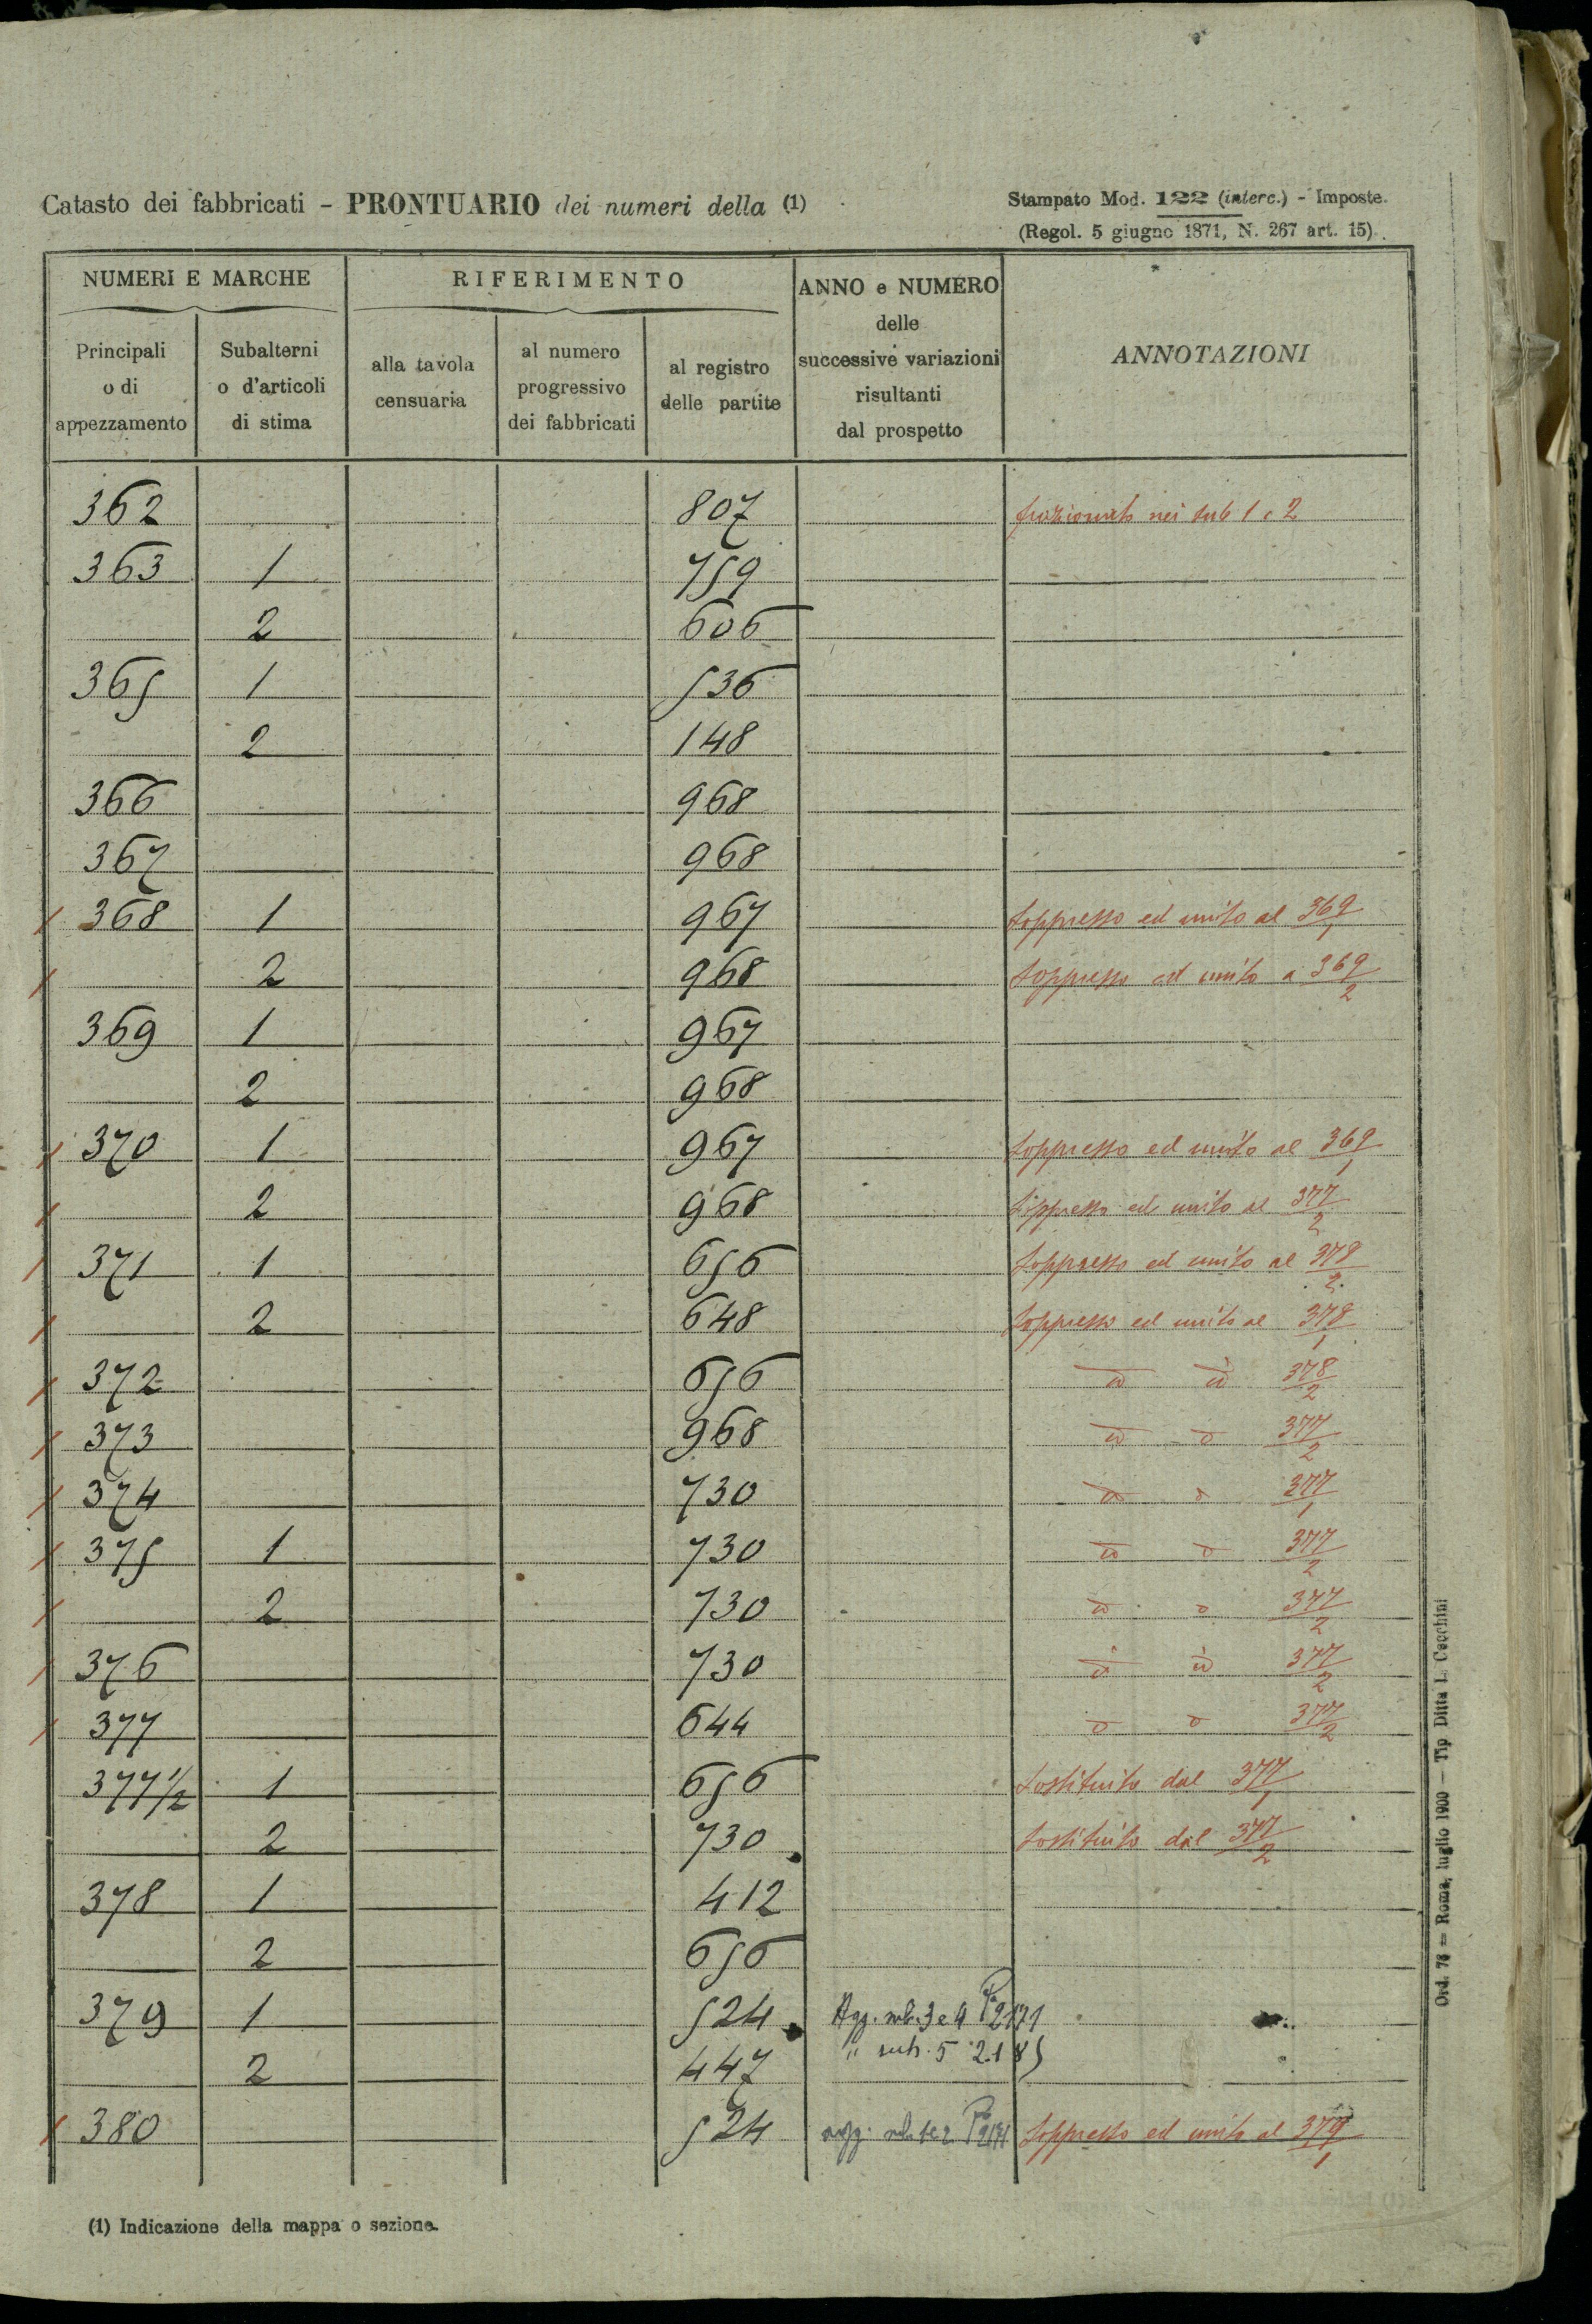 Catasto dei fabbricati - PRONTUARIO dei numeri della (1)
Stampato Mod. 122 (interc.) - Imposte.
(Regol. 5 giugno 1871, N. 267 art. 15).
NUMERI E MARCHE
RIFERIMENTO
ANNO e NUMERO
delle
successive variazioni
risultanti
dal prospetto
ANNOTAZIONI
Principali
o di
appezzamento
Subalterni
o d'articoli
di stima
alla tavola
censuaria
al numero
progressivo
dei fabbricati
al registro
delle partite
362 807 frazionato nei sub 1 e 2
363 1 759
2 606
365 1 536
2 148
366 968
367 968
368 1 967 soppresso ed unito al 369/1
2 968 soppresso ed unito a 369/2
369 1 967
2 968
370 1 967 soppresso ed unito al 369/1
2 968 soppresso ed unito al 377/2
371 1 656 soppresso ed unito al 378/2
2 648 soppresso ed unito al 378/1
372 656 378/2
373 968 377/2
374 730 377/1
375 1 730 377/2
2 730 377/2
376 730 377/2
377 644 377/2
377 1/2 1 656 sostituito dal 377/1
2 730 sostituito dal 377/2
378 1 412
2 656
379 1 524 Agg. sub. 3 e 4 Pa 2171
" sub. 5 2185
2 447
380 524 agg. sub. 1 e 2 Pa 2171 soppresso ed unito al 379/1
(1) Indicazione della mappa o sezione.
Ord. 78 = Roma, luglio 1900 — Tip Ditta L. Cecchini